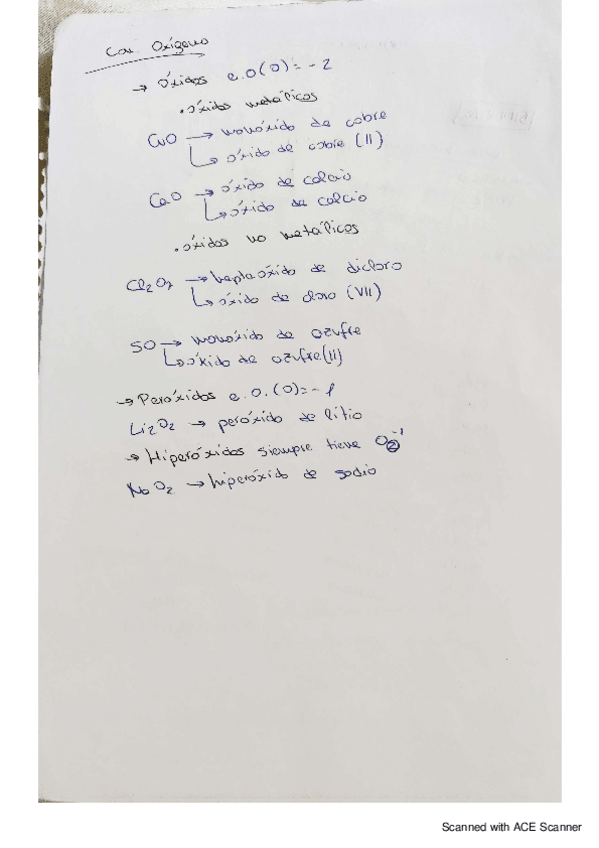 Con Oxígeno
→ óxidos e.O(O)=-2
.óxidos metálicos
CuO → monóxido de cobre
↳ óxido de cobre (II)
CaO → óxido de calcio
↳ óxido de calcio
.óxidos no metálicos
Cl2O7 → heptaóxido de dicloro
↳ óxido de cloro (VII)
SO → monóxido de azufre
↳ óxido de azufre(II)
→ Peróxidos e.O.(O)=-1
Li2O2 → peróxido de litio
→ Hiperóxidos siempre tiene O2⁻¹
NaO2 → hiperóxido de sodio
Scanned with ACE Scanner